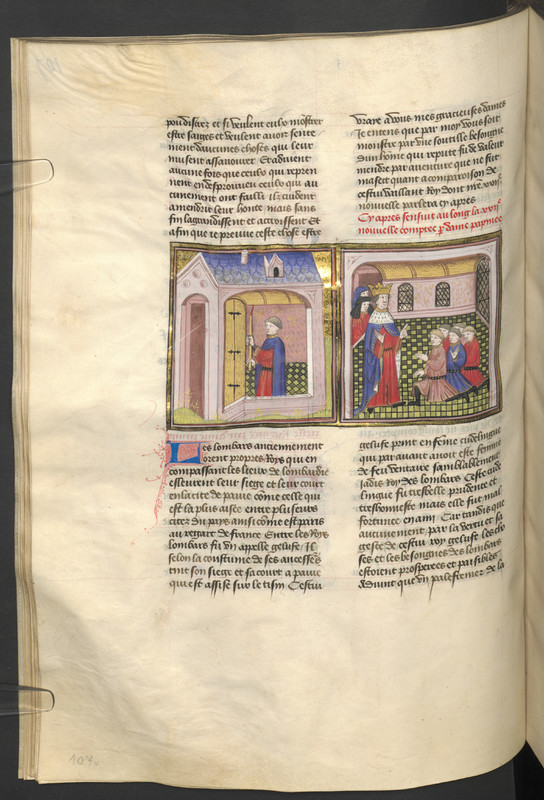 pou disiez et si veulent eulx mostrer
estre saiges et veulent avoir sente
ment daucunes choses qui leur
nuisent assavourer Et advient
aucune fois que ceulx qui repren
nent en desprouvent ceulx qui au
cunement ont failli ilz cuident
amendrir leur honte mais sans
fin lagrandissent et accroissent Et
afin que je preuve ceste chose estre
vraye a vous mes gracieuses dames
Je entens que par moy vous soit
monstre par une soutille besongne
dun home qui repute fu de valeur
mendre par aventure que ne fut
maset quant a comparoison de
cestui vaillant Roy dont ma
nouvelle parlera cy apres
Cy apres sensuit au long la
nouvelle comptee p dame papinee
Les lombars anciennement
orent propres Roys qui en
compassant les lieux de lombardie
esleurent leur siege et leur court
en la cite de pavie come celle qui
est la plus aisee entre pluseurs
citez du pays ainsi come est paris
au regart de france Entre les Roys
lombars fu un appelle gelufe Il
selon la coustume de ses ancesses
tint son siege et sa court a pavie
qui est assise sur le tisin Cestui
gelufe print en feme eudelingue
qui par avant avoit este femme
de feu ventaire samblablement
jadis Roy des lombars Ceste eude
lingue fu tresbelle prudente et
treshonneste mais elle fut mal
fortunee en amy Car tandis que
aucunement par la vertu et sa
gesse de cestui roy gelufe les cho
ses et les besongnes des lombars
estoient prosperees et paisibles
advint que un palefrenier de la
104v